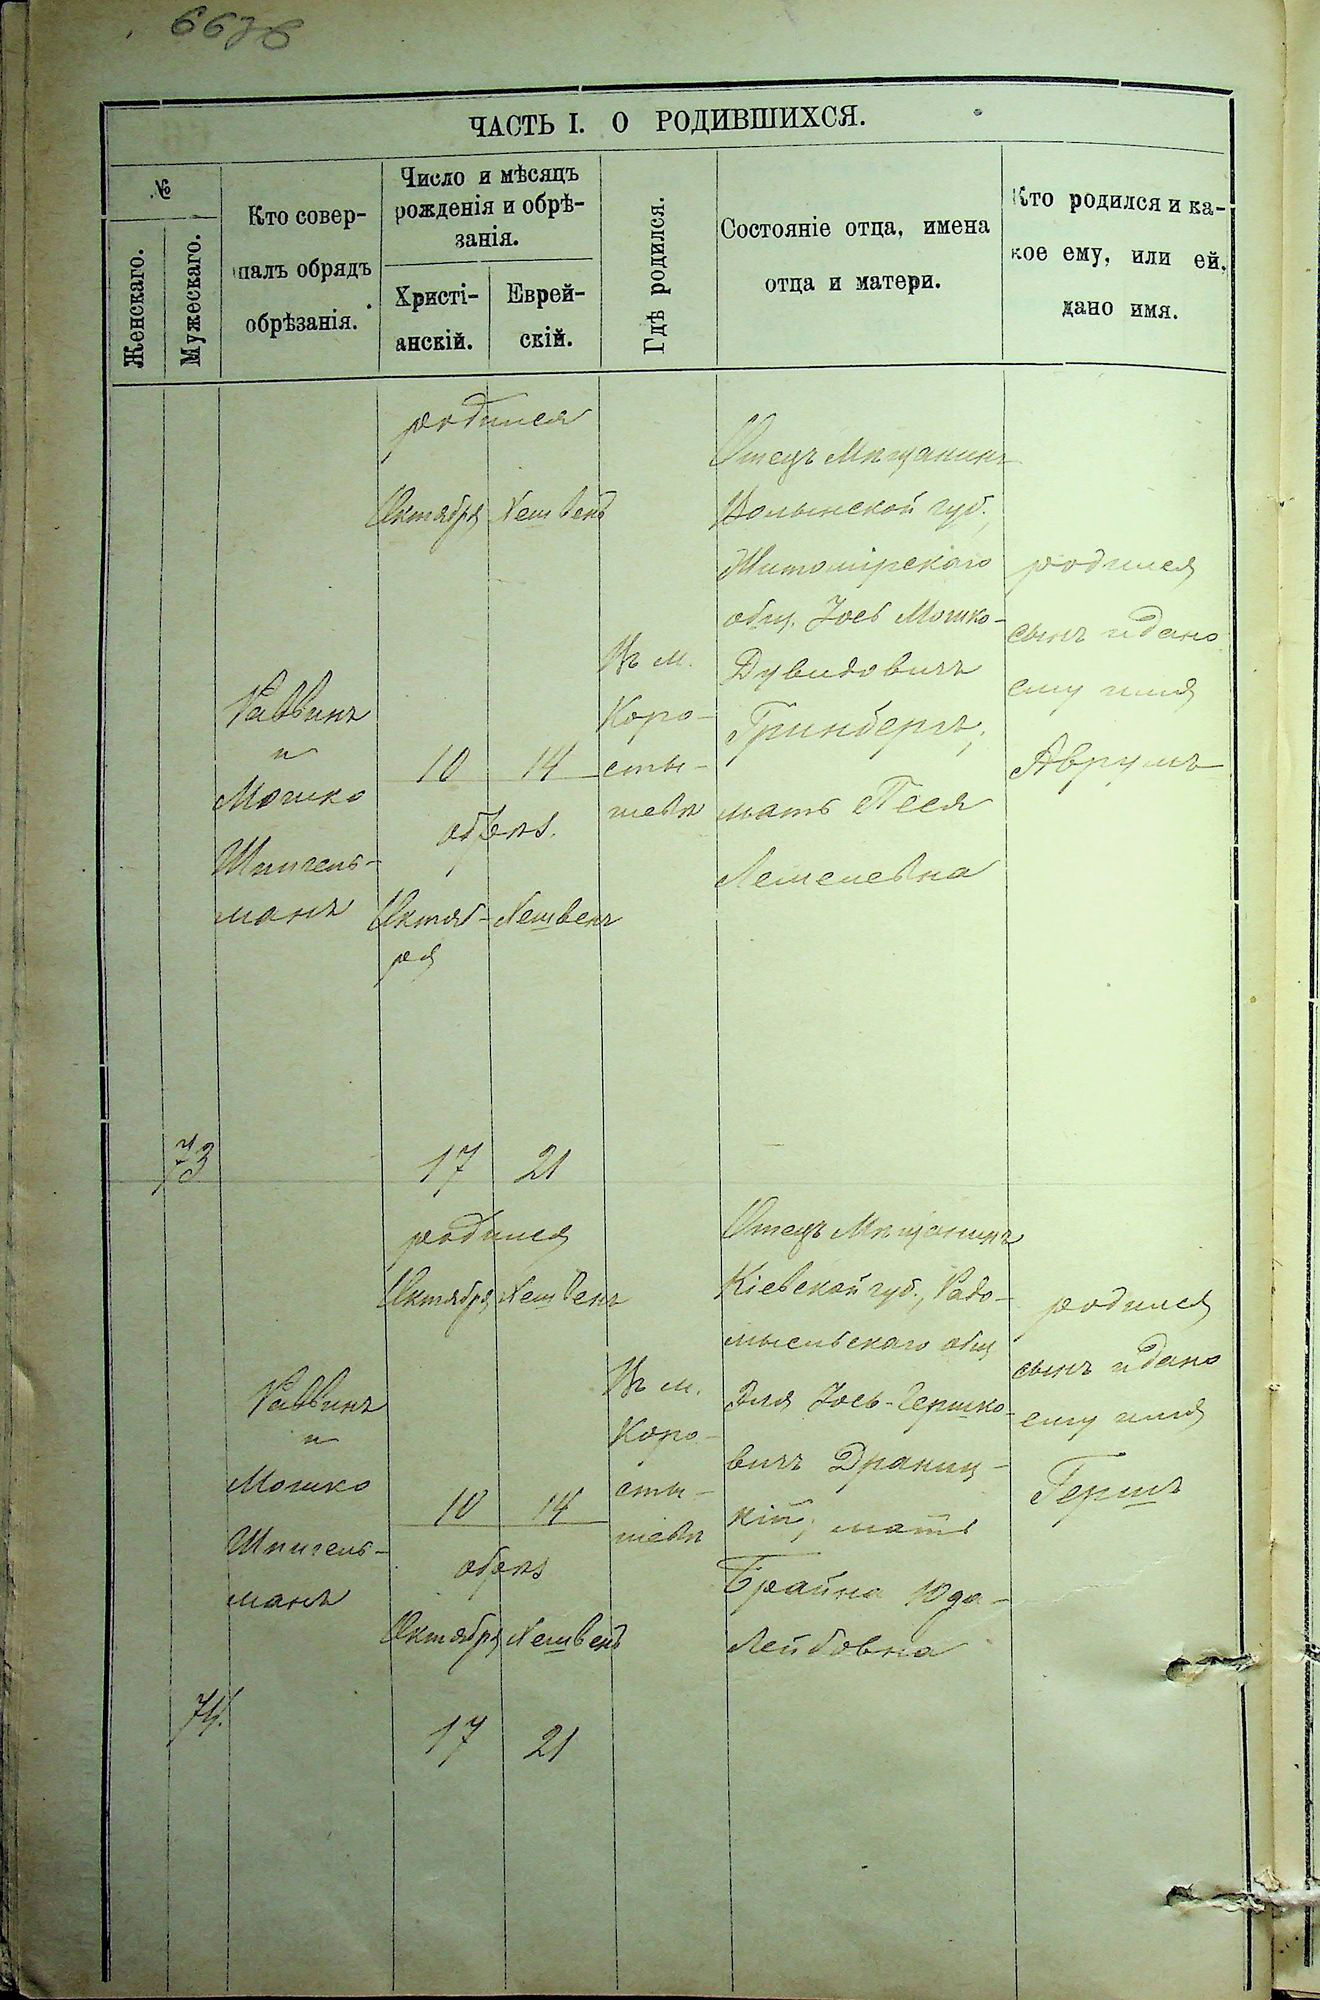 ЧАСТЬ I. О РОДИВШИХСЯ.
№
Женскаго.
Мужескаго.
Кто совер-
шалъ обрядъ
обрѣзанія.
Число и мѣсяцъ
рожденія и обрѣ-
занія.
Христі-
анскій.
Еврей-
скій.
Гдѣ родился.
Состояніе отца, имена
отца и матери.
Кто родился и ка-
кое ему, или ей,
дано имя.
73
Раввинъ
и
Мошко
Шпигель-
манъ
родился
Октября Хешвенъ
10 14
обрѣз.
Октяб- Хешвенъ
ря
17 21
Въ м.
Коро-
сты-
шевѣ
Отецъ Мѣщанинъ
Волынской губ.,
Житомірскаго
общ. Іось Мошко-
Дувидовичъ
Гринбергъ;
мать Песя
Лемелевна
родился
сынъ и дано
ему имя
Аврумъ
74.
Раввинъ
и
Мошко
Шпигель-
манъ
родился
Октября Хешвенъ
10 14
обрѣз
Октября Хешвенъ
17 21
Въ м.
Коро-
сты-
шевѣ
Отецъ Мѣщанинъ
Кіевской губ., Радо-
мысльскаго общ
Эля Іось-Гершко-
вичъ Драниц-
кій; мать
Брайна Юда-
Лейбовна
родился
сынъ и дано
ему имя
Гершъ